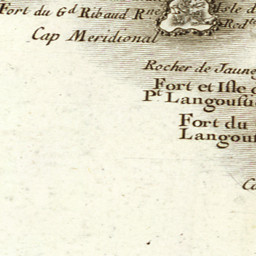 Fort du Gd Ribaud Rne
Isle d
Rod
Cap Meridional
Rocher de Jaune
Fort et Isle d
Pt Langou
Fort du
Langou
Ca